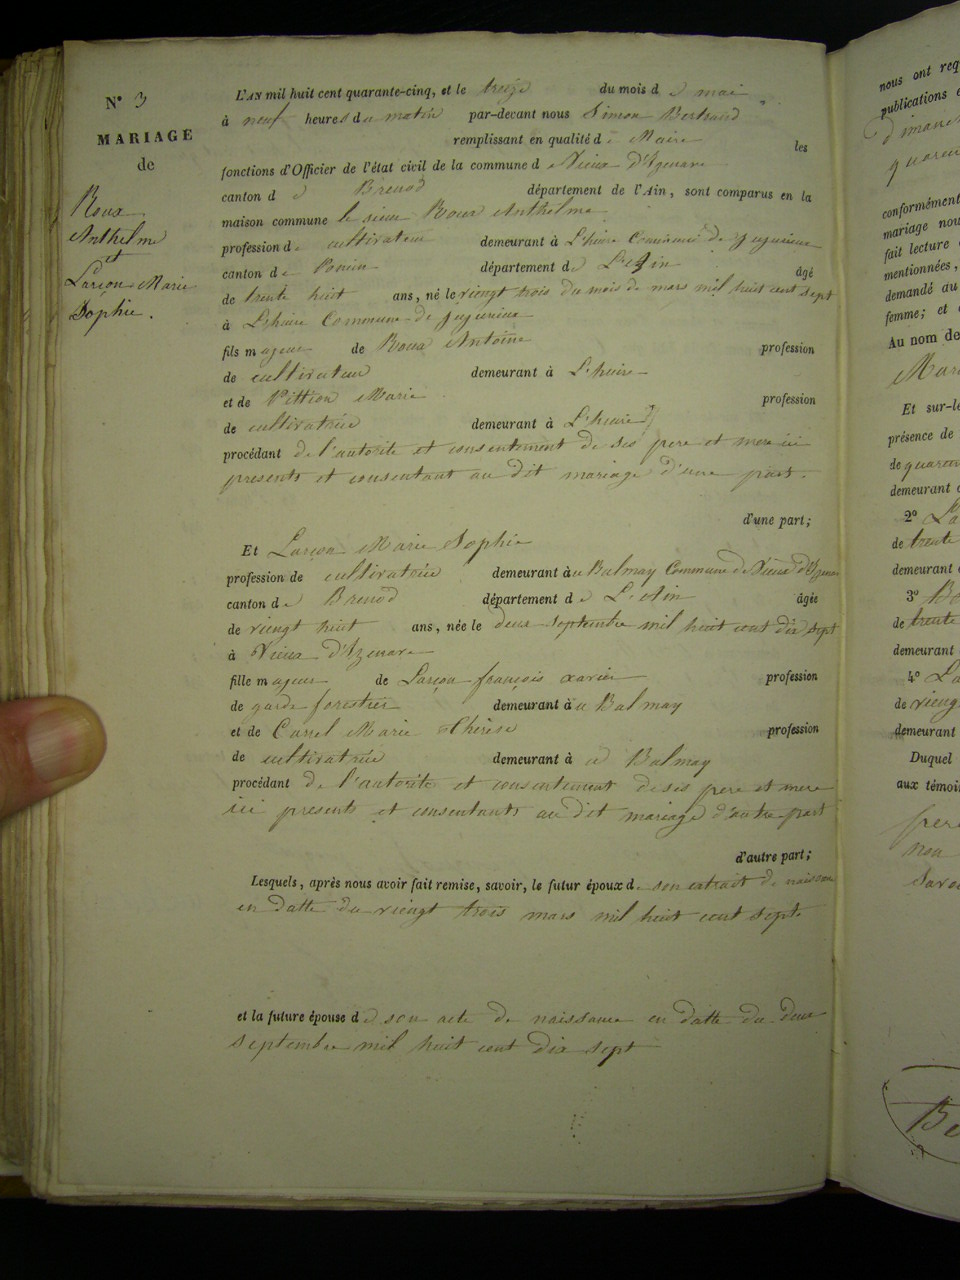 N° 3
MARIAGE
de
Roux
Anthelme
et
Larçon Marie
Sophie.
L'AN mil huit cent quarante-cinq, et le treize du mois de mai
à neuf heures du matin par-devant nous Simon Bertrand
remplissant en qualité de Maire les
fonctions d'Officier de l'état civil de la commune de Vieux d'Izenave
canton de Brenod département de l'Ain, sont comparus en la
maison commune le sieur Roux Anthelme
profession de cultivateur demeurant à L'huire Commune de Jujurieux
canton de Poncin département de L'Ain âgé
de trente huit ans, né le viengt trois du mois de mars mil huit cent sept
à L'huire Commune de Jujurieux
fils majeur de Roux Antoine profession
de cultivateur demeurant à L'huire
et de Vittion Marie profession
de cultivatrice demeurant à L'huire
procédant de l'autorite et consentement de ses pere et mere ici
presents et consentant au dit mariage d'une part.
d'une part;
Et Larçon Marie Sophie
profession de cultivatrice demeurant à u Balmay Commune de Vieux d'Izenave
canton de Brenod département de L'Ain âgée
de viengt huit ans, née le deux septembre mil huit cent dix sept
à Vieux d'Izenave
fille majeur de Larçon françois xavier profession
de garde forestier demeurant à u Balmay
et de Carrel Marie Thérèse profession
de cultivatrice demeurant à u Balmay
procédant de l'autorite et consentement de ses pere et mere
ici presents et consentants au dit mariage d'autre part
d'autre part;
Lesquels, après nous avoir fait remise, savoir, le futur époux de son extrait de naissance
en datte du viengt trois mars mil huit cent sept
et la future épouse de son acte de naissance en datte du deux
septembre mil huit cent dix sept
nous ont req
publications
dimanc
conformément
mariage nou
fait lecture
mentionnées,
demandé au
femme; et
Au nom de
Mari
Et sur-le
présence de
de quaran
demeurant
2° La
de trente
demeurant
3° Bo
de trente
demeurant
4° La
de viengt
demeurant
Duquel
aux témoi
pere
non